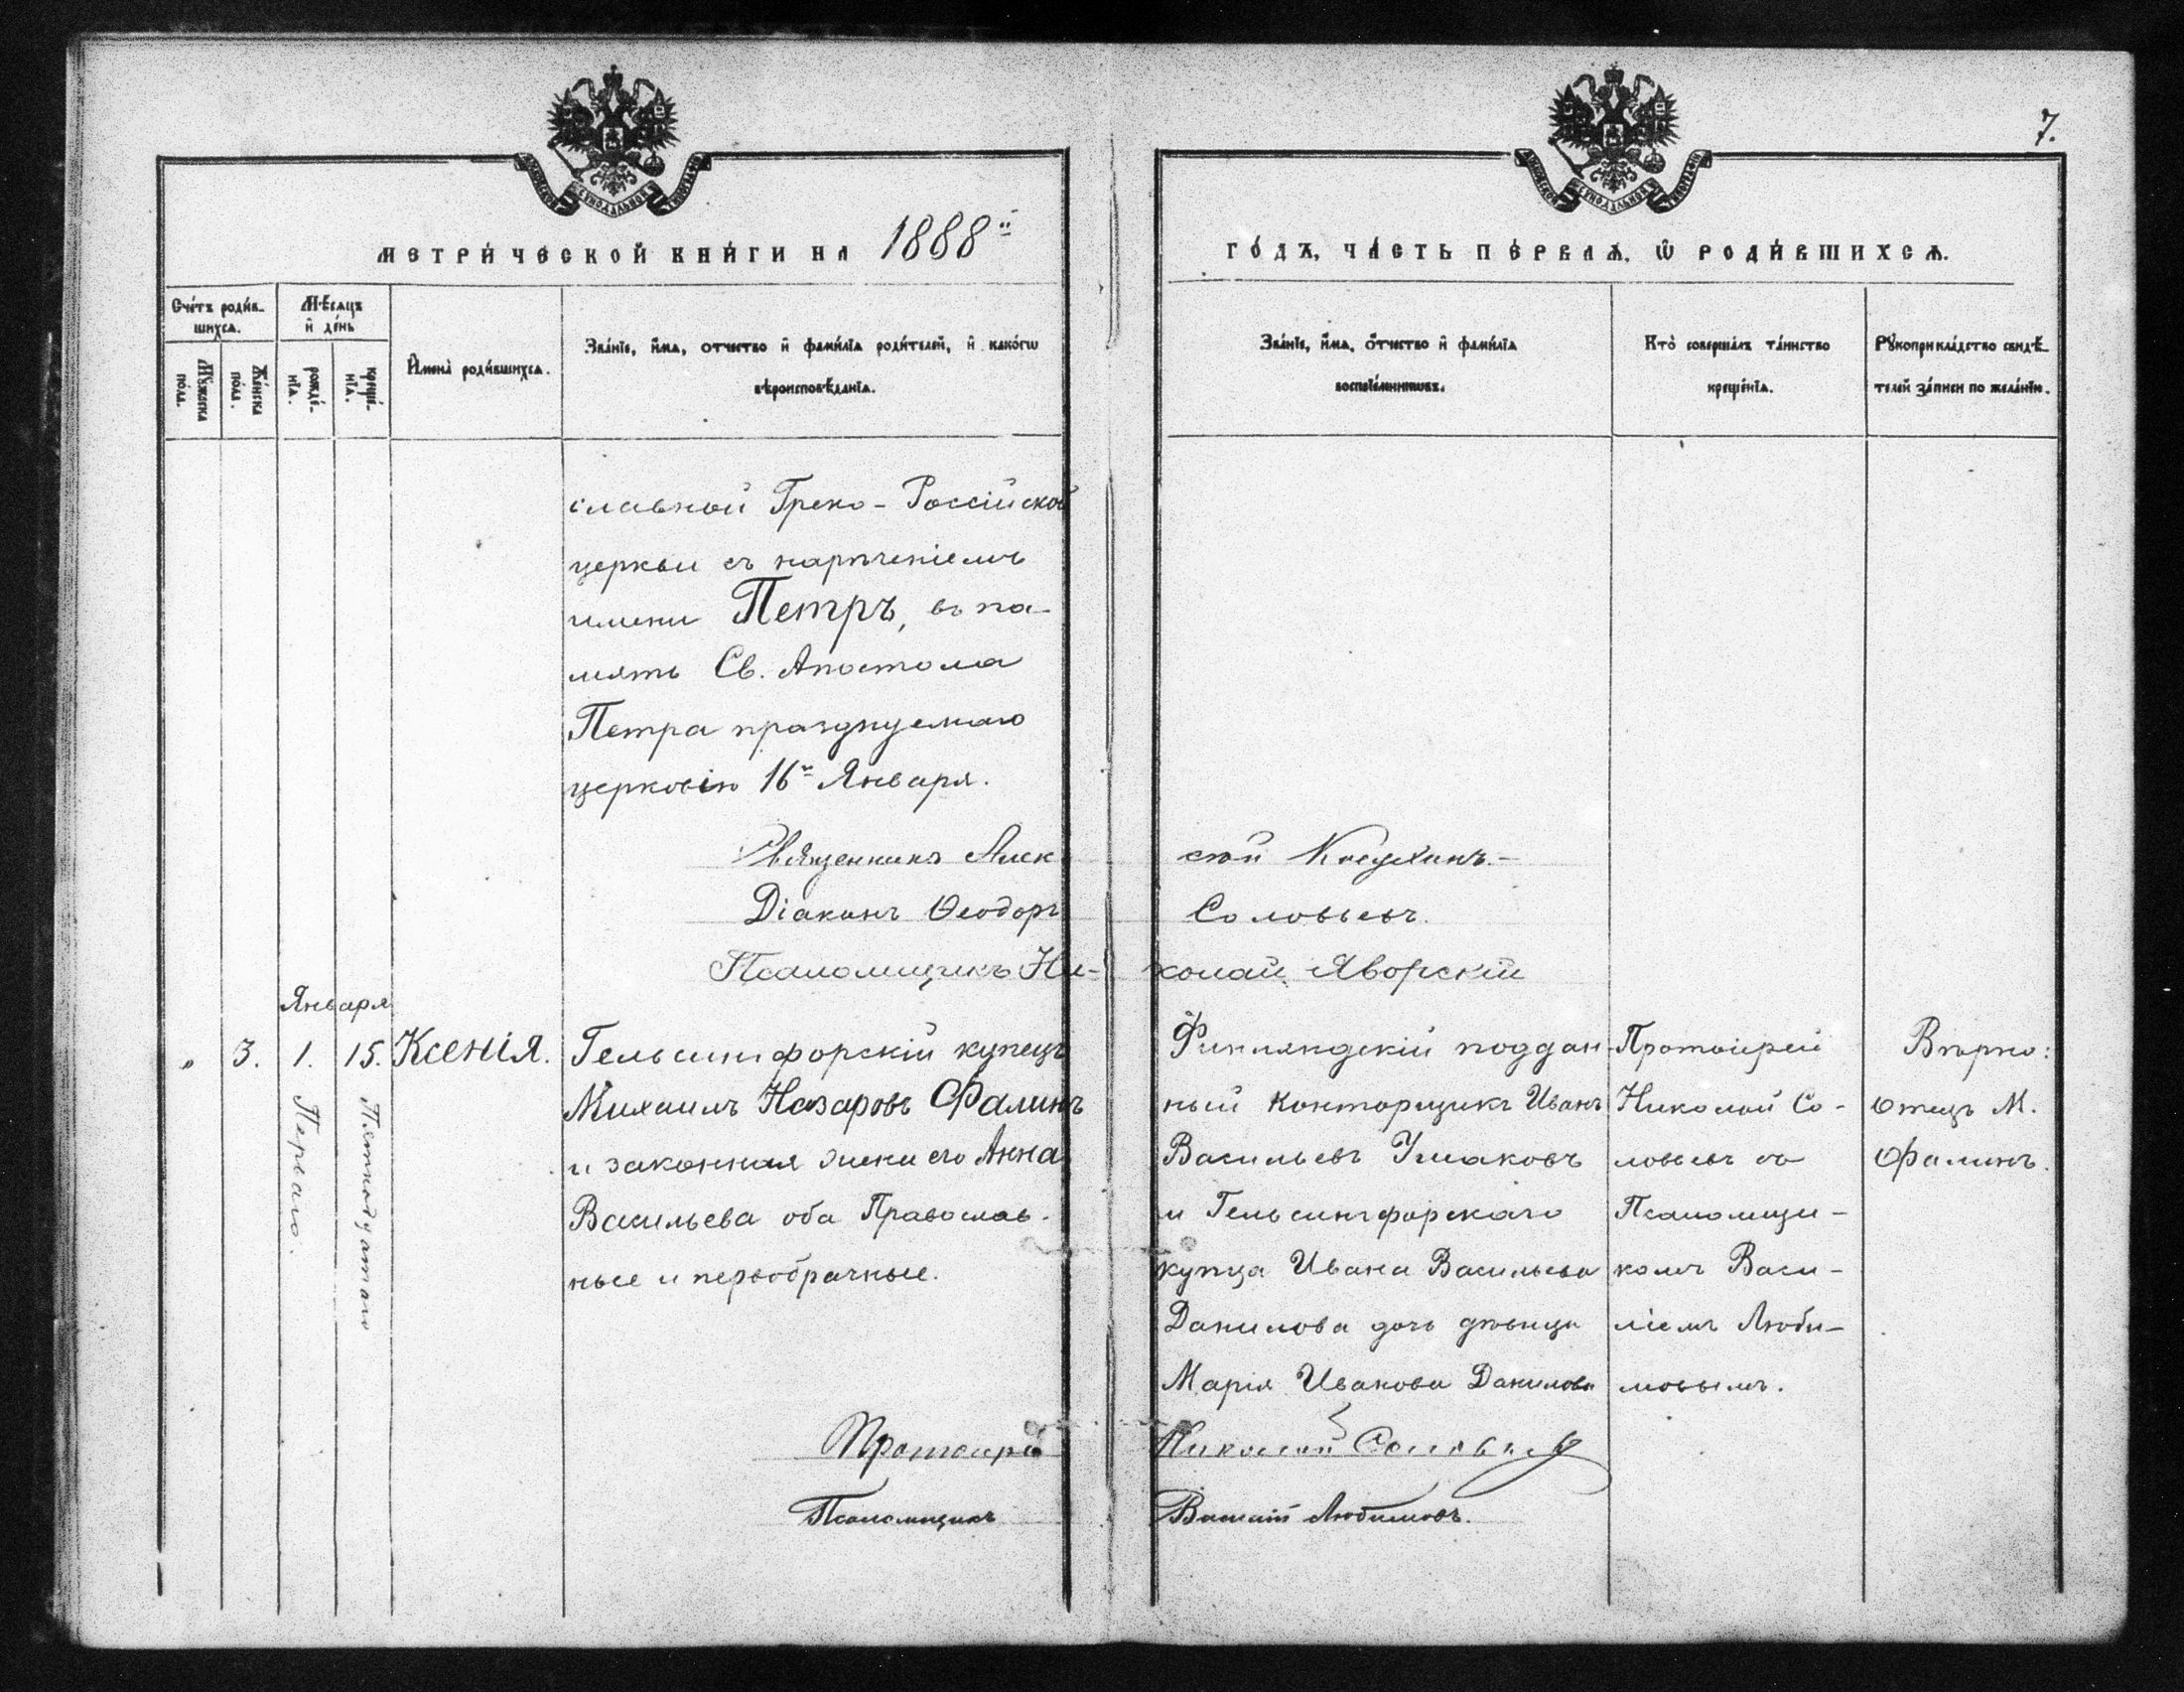 7.
МЕТРИ́ЧЕСКОЙ КНИ́ГИ НА 1888й
ГО́ДЪ, ЧА́СТЬ ПЕ́РВАѦ, Ѡ РОДИ́ВШИХСѦ.
Сче́тъ роди́в-
шихсѧ.
Мꙋ́жеска
по́ла.
Же́нска
по́ла.
Мѣ́сѧцъ
и де́нь
рожде́-
нїѧ.
креще́-
нїѧ.
Имена̀ роди́вшихсѧ.
Зва́нїе, и́мѧ, отчество и фами́лїѧ роди́телей, и како́гѡ
вѣроисповѣ́данїѧ.
Зва́нїе, и́мѧ, о́тчество и фами́лїѧ
воспрїе́мниковъ.
Кто̀ соверша́лъ та́инство
креще́нїѧ.
Рꙋкоприкла́дство свидѣ́-
телей за́писи по жела́нїю.
славной Греко-Россійской
церкви съ нареченіемъ
имени Петръ, въ па-
мять Св. Апостола
Петра празднуемаго
церковію 16го Января.
Священникъ Алек
сѣй
Діаконъ Ѳеодоръ
Соловьевъ.
Псаломщикъ Ни-
колай Яворскій
Января
" 3. 1. 15. Ксенія.
Перваго.
Пятнадцатаго
Гельсингфорскій купецъ
Михаилъ Назаровъ Фалинъ
и законная жена его Анна
Васильева оба Православ-
ные и первобрачные.
Финляндскій поддан-
ный Конторщикъ Иванъ
Васильевъ Ушаковъ
и Гельсингфорскаго
купца Ивана Васильева
Данилова дочь дѣвица
Марія Иванова Данилова
Протоіерей
Николай Со-
ловьевъ съ
Псаломщи-
комъ Васи-
ліемъ Люби-
мовымъ.
Вѣрно:
Отецъ М.
Фалинъ.
Протоіерей
Николай Соловьевъ
Псаломщикъ
Василій Любимовъ.